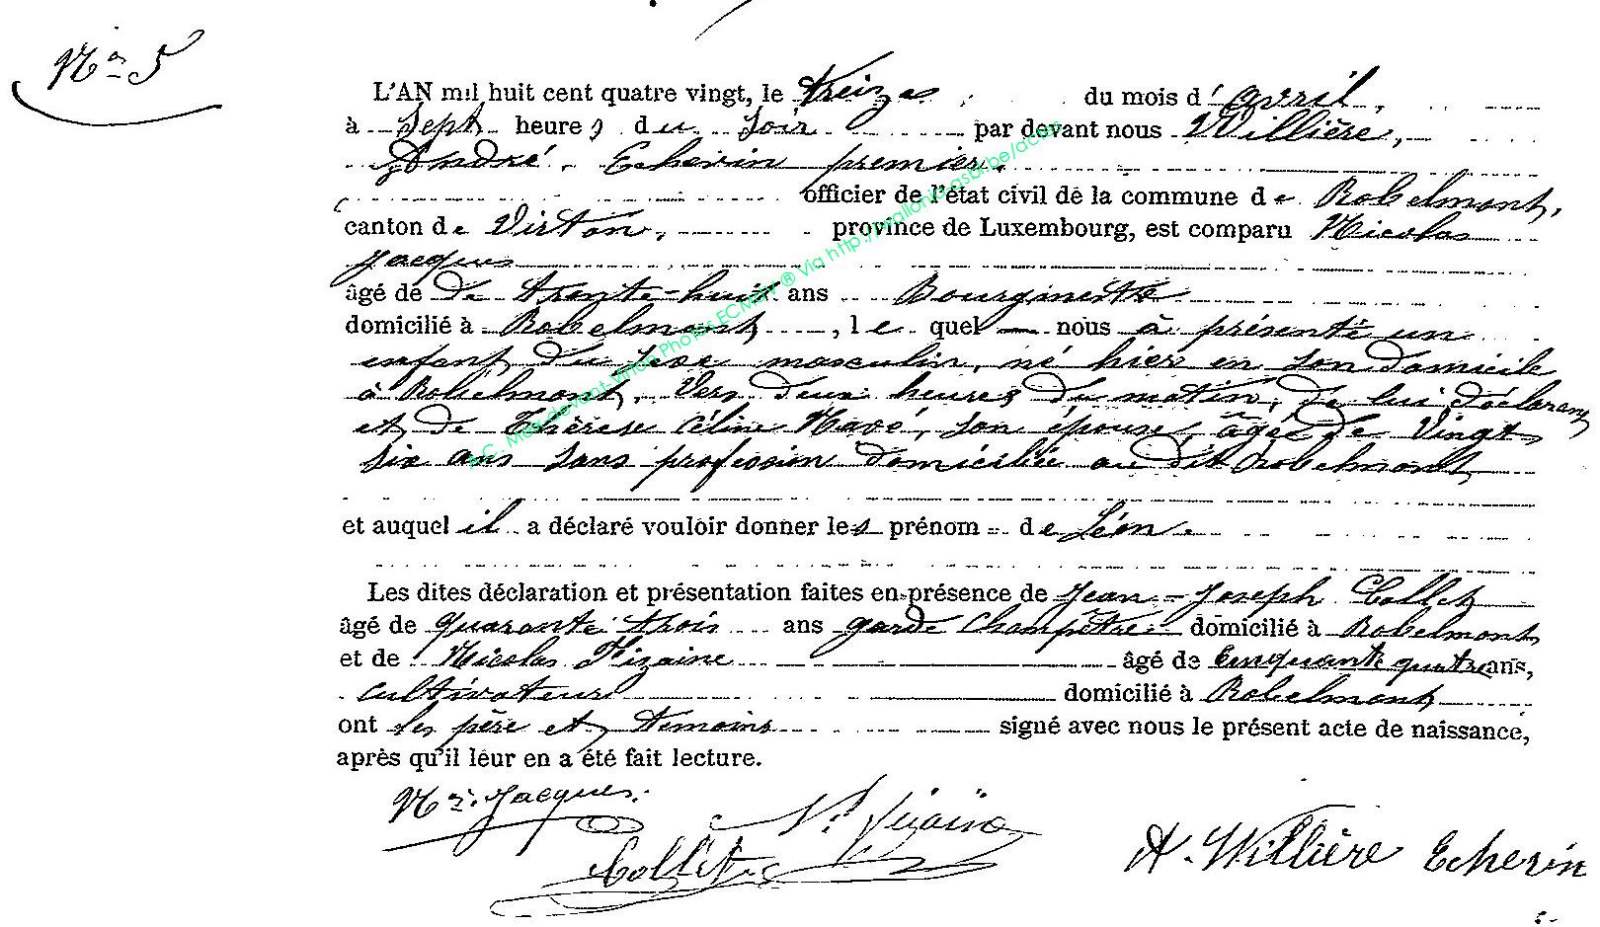 No 5
L'AN mil huit cent quatre vingt, le treize du mois d'avril,
à sept heures du soir par devant nous Willière,
André, Echevin premier,
officier de l'état civil de la commune de Robelmont,
canton de Virton, province de Luxembourg, est comparu Nicolas
Jacques
âgé de de trente-huit ans
domicilié à Robelmont, lequel nous à présenté un
enfant du sexe masculin, né hier en son domicile
à Robelmont, vers deux heures du matin, de lui déclarant
et de Thérèse Céline Havé, son épouse, âgée de vingt
six ans sans profession domiciliée au dit Robelmont
et auquel il a déclaré vouloir donner les prénom de Léon.
Les dites déclaration et présentation faites en présence de Jean-Joseph Collet
âgé de quarante trois ans garde champêtre domicilié à Robelmont
et de Nicolas Fizaine âgé de cinquante quatre ans,
cultivateur domicilié à Robelmont
ont les père et témoins signé avec nous le présent acte de naissance,
après qu'il leur en a été fait lecture.
Nas. Jacques. N. Fizaine
Collet A. Willière Echevin